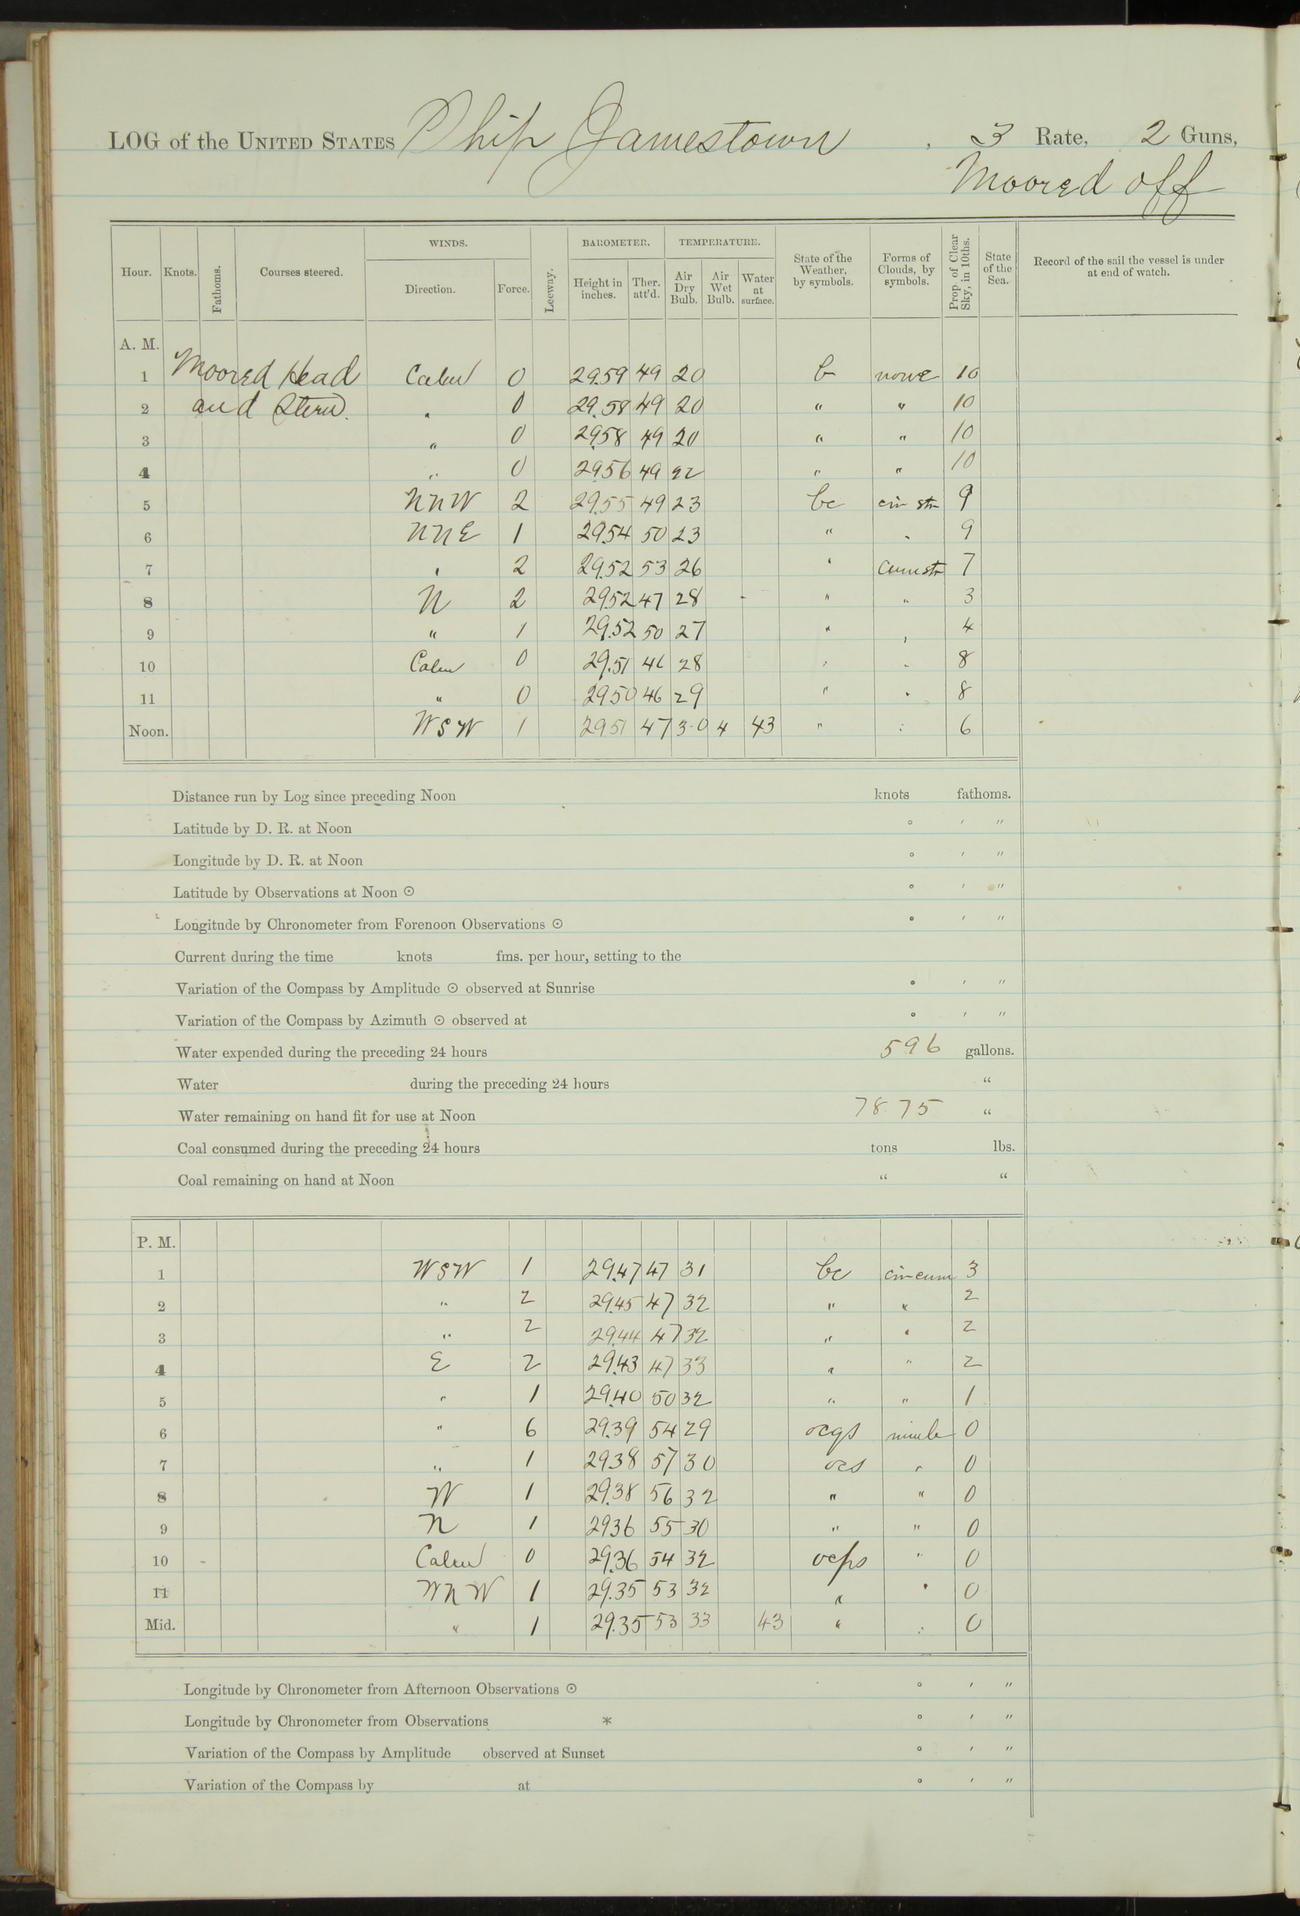 LOG of the UNITED STATES Ship Jamestown , 3 Rate, 2 Guns,
Moored off
Hour. Knots. Fathoms. Courses steered. WINDS. Direction. Force. Leeway. BAROMETER. Height in inches. Ther. att'd. TEMPERATURE. Air Dry Bulb. Air Wet Bulb. Water at surface. State of the Weather, by symbols. Forms of Clouds, by symbols. Prop. of Clear Sky, in 10ths. State of the Sea. Record of the sail the vessel is under at end of watch.
A. M.
1 Moored Head Calm 0 29.59 49 20 b none 10
2 and Stern. " 0 29.58 49 20 " " 10
3 " 0 29.58 49 20 " " 10
4 " 0 29.56 49 22 " " 10
5 NNW 2 29.55 49 23 bc cir str 9
6 NNE 1 29.54 50 23 " " 9
7 " 2 29.52 53 26 " cum str 7
8 N 2 29.52 47 28 " " 3
9 " 1 29.52 50 27 " " 4
10 Calm 0 29.51 46 28 " " 8
11 " 0 29.50 46 29 " " 8
Noon. WSW 1 29.51 47 30 4 43 " " 6
Distance run by Log since preceding Noon knots fathoms.
Latitude by D. R. at Noon ° ′ ″
Longitude by D. R. at Noon ° ′ ″
Latitude by Observations at Noon ☉ ° ′ ″
Longitude by Chronometer from Forenoon Observations ☉ ° ′ ″
Current during the time knots fms. per hour, setting to the
Variation of the Compass by Amplitude ☉ observed at Sunrise ° ′ ″
Variation of the Compass by Azimuth ☉ observed at ° ′ ″
Water expended during the preceding 24 hours 596 gallons.
Water during the preceding 24 hours "
Water remaining on hand fit for use at Noon 7875 "
Coal consumed during the preceding 24 hours tons lbs.
Coal remaining on hand at Noon " "
P. M.
1 WSW 1 29.47 47 31 bc cir cum 3
2 " 2 29.45 47 32 " " 2
3 " 2 29.44 47 32 " " 2
4 E 2 29.43 47 33 " " 2
5 " 1 29.40 50 32 " " 1
6 " 6 29.39 54 29 ocqs nimb 0
7 " 1 29.38 57 30 ocs " 0
8 W 1 29.38 56 32 " " 0
9 N 1 29.36 55 30 " " 0
10 Calm 0 29.36 54 32 ocps " 0
11 WNW 1 29.35 53 32 " " 0
Mid. " 1 29.35 53 33 43 " " 0
Longitude by Chronometer from Afternoon Observations ☉ ° ′ ″
Longitude by Chronometer from Observations * ° ′ ″
Variation of the Compass by Amplitude observed at Sunset ° ′ ″
Variation of the Compass by at ° ′ ″